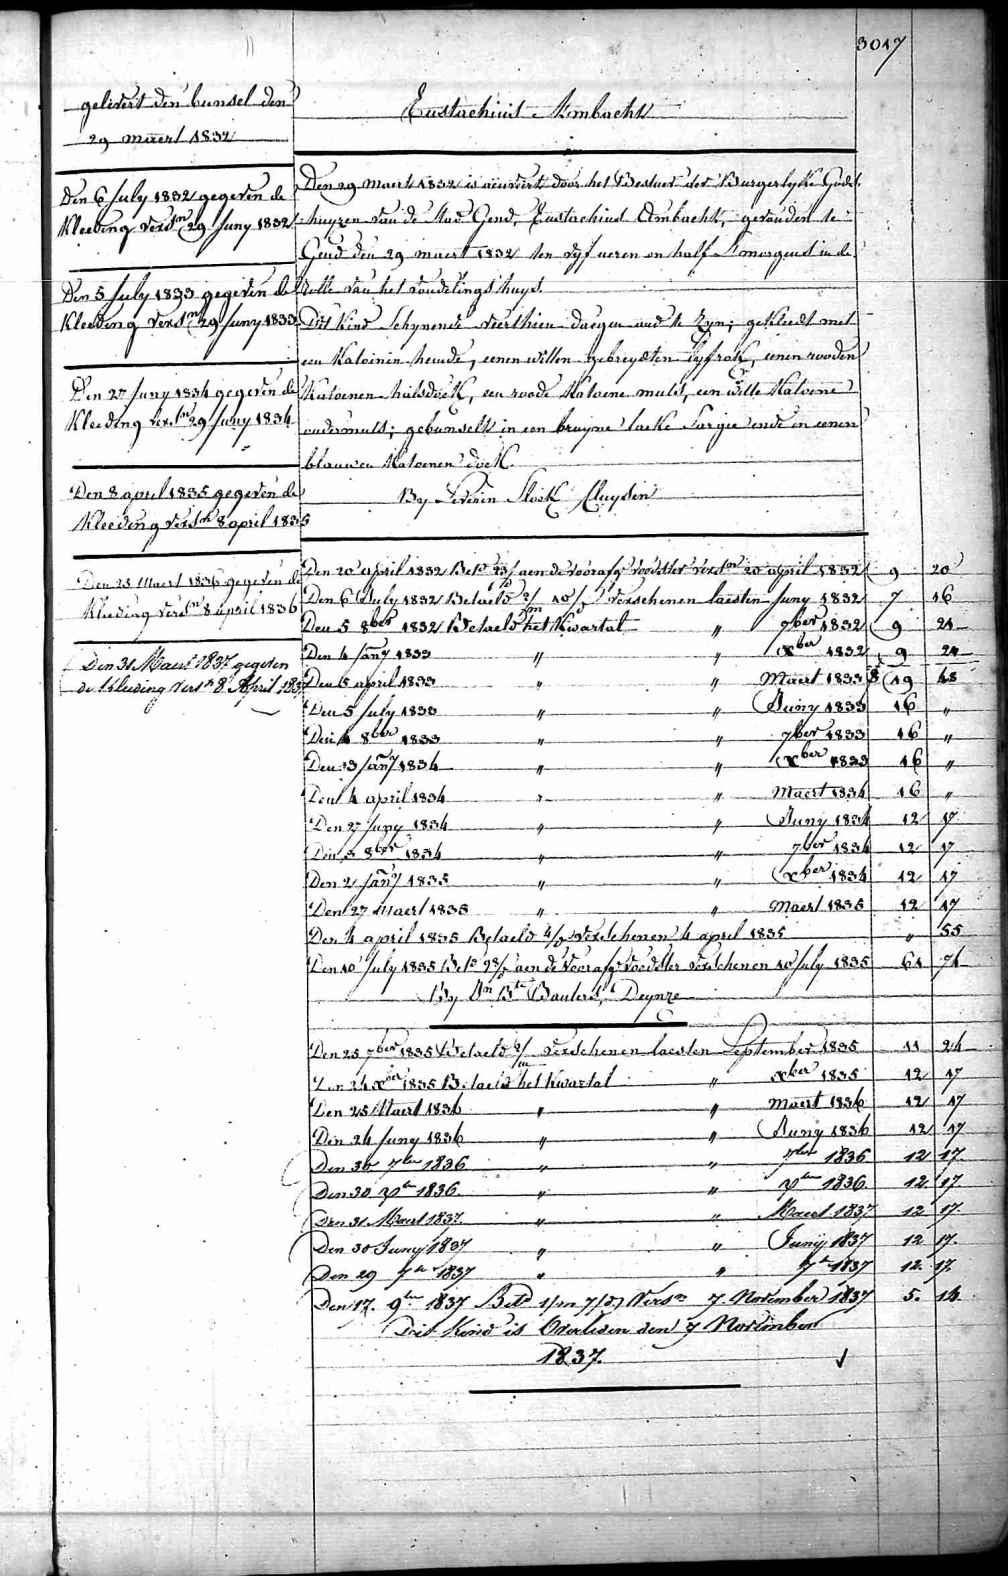 3017
gelevert den bunsel den
29 maert 1832
Den 6 July 1832 gegeven de
Kleeding versn 29 Juny 1832
Den 5 July 1833 gegeven de
Kleeding versn 29 Juny 1833
Den 27 Juny 1834 gegeven de
Kleeding versn 29 Juny 1834
Den 8 april 1835 gegeven de
Kleeding versn 8 april 1835
Den 25 Maert 1836 gegeven de
Kleeding versn 8 april 1836
Den 31 Maert 1837 gegeven
de Kleeding versn 8 April 1837
Eustachius Ambacht
Den 29 Maert 1832 is aenveert door het Bestuer der Burgerlyke Gods
huyzen van de Stad Gend, Eustachius Ambacht, gevonden te
Gend den 29 maert 1832 ten vyf ueren en half smorgens in de
rolle van het vondelings huys.
Dit Kind schynende veerthien daegen oud te zyn; gekleed met
een Katoenen hemde, eenen witten gebreyden lyfrok, eenen rooden
Katoenen halsdoek, een roode Katoene muts, een witte Katoene
ondermuts; gebunselt in een bruyne laeke Sargie ende in eenen
blauwen Katoenen doek.
By Severin Slock Cluysen
Den 20 april 1832 Beto 23/ aen de voorafge voedster versn 20 april 1832 9 20
Den 6 July 1832 Betaeld 2/m 10/d verschenen laesten Juny 1832 7 16
Den 5 8ber 1832 Betaeld het Kwartal " 7ber 1832 9 24
Den 4 Jany 1833 " " xber 1832 9 24
Den 5 april 1833 " " Maert 1833 19 48
Den 5 July 1833 " " Juny 1833 16 "
Den 4 8ber 1833 " " 7ber 1833 16 "
Den 3 Jany 1834 " " xber 1833 16 "
Den 4 april 1834 " " Maert 1834 16 "
Den 27 Juny 1834 " " Juny 1834 12 17
Den 3 8ber 1834 " " 7ber 1834 12 17
Den 2 Jany 1835 " " xber 1834 12 17
Den 27 Maert 1835 " " Maert 1835 12 17
Den 4 april 1835 Betaeld 4/d verschenen 4 april 1835 " 55
Den 10 July 1835 Beto 98/ aen de voorafge voedster verschenen 10 July 1835 61 74
By Bte Bauters, Deynze
Den 25 7ber 1835 Betaeld 2/m verschenen laesten September 1835 11 24
Den 24 xber 1835 Betaeld het Kwartal " xber 1835 12 17
Den 25 Maert 1836 " " Maert 1836 12 17
Den 24 Juny 1836 " " Juny 1836 12 17
Den 30 7ber 1836 " " 7ber 1836 12 17
Den 30 xber 1836 " " xber 1836 12 17
Den 31 Maert 1837 " " Maert 1837 12 17
Den 30 Juny 1837 " " Juny 1837 12 17
Den 29 7ber 1837 " " 7br 1837 12 17
Den 17 9ber 1837 Betd 1/m 7/d Versn 7 November 1837 5 14
Dit Kind is Overleden den 7 November
1837.